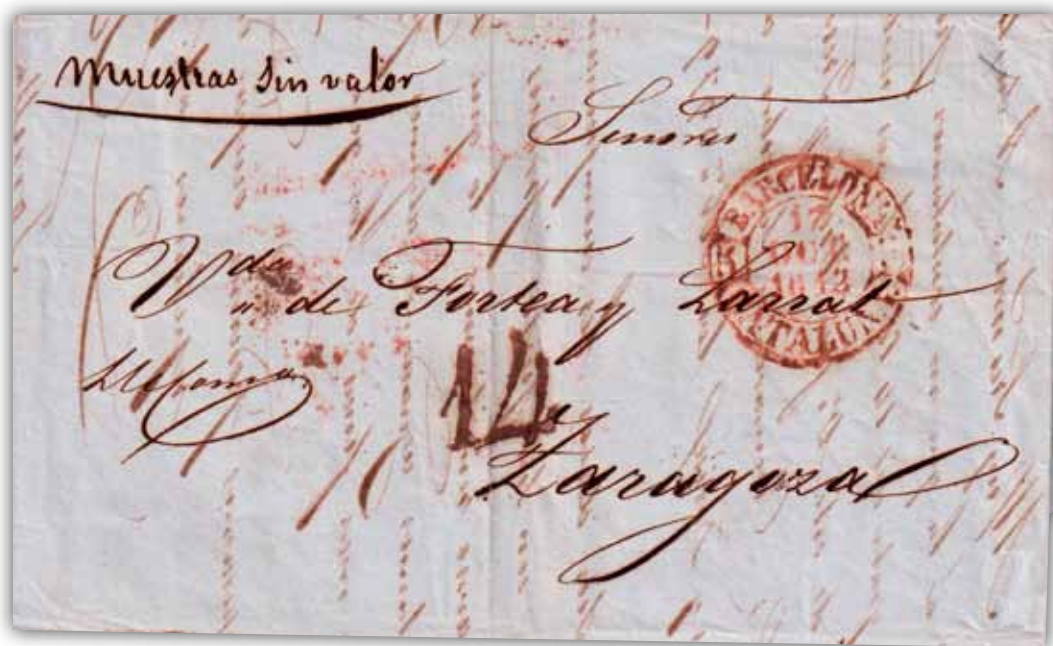 Muestras Sin valor
Señores
BARCELONA
17
CATALUÑA
Vda de Fortea y Larrat
14
Zaragoza